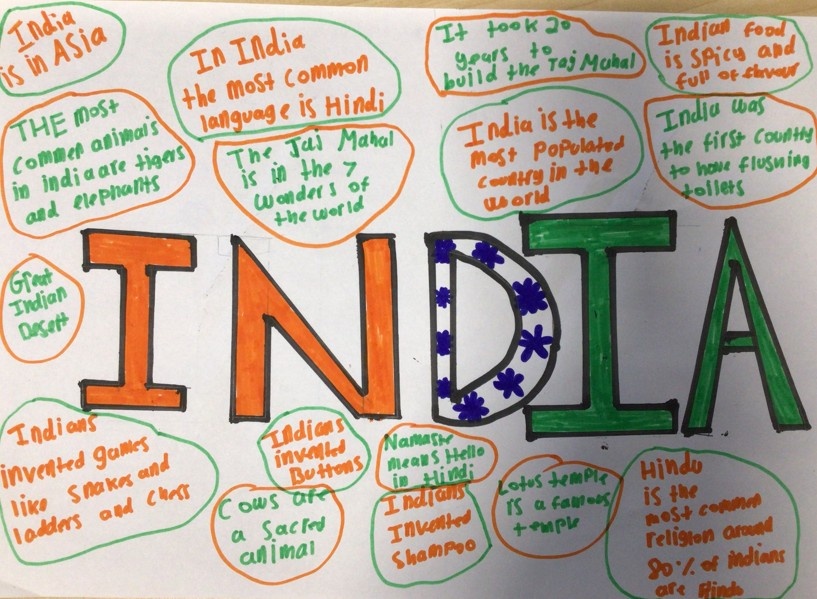 India
is in Asia
In India
the most common
language is Hindi
It took 20
years to
build the Taj Mahal
Indian food
is spicy and
full of flavour
THE most
common animals
in india are tigers
and elephants
The Taj Mahal
is in the 7
wonders of
the world
India is the
most populated
country in the
world
India was
the first country
to have flushing
toilets
Great
Indian
Desert
INDIA
Indians
invented games
like snakes and
ladders and chess
Indians
invented
Buttons
Namaste
means Hello
in Hindi
Cows are
a sacred
animal
Indians
Invented
Shampoo
Lotus temple
is a famous
temple
Hindu
is the
most common
religion around
80% of indians
are Hindu